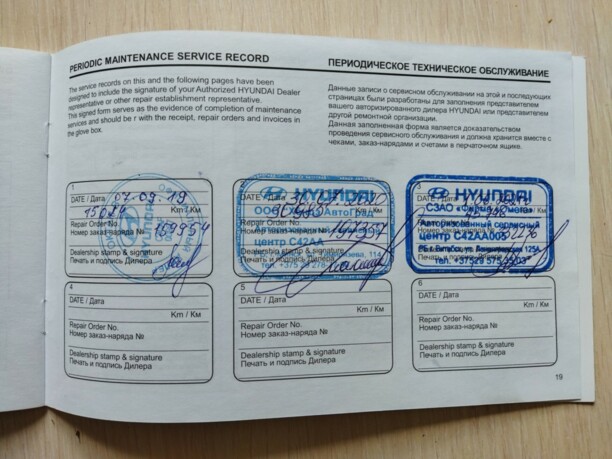 PERIODIC MAINTENANCE SERVICE RECORD
The service records on this and the following pages have been
designed to include the signature of your Authorized HYUNDAI Dealer
representative or other repair establishment representative.
This signed form serves as the evidence of completion of maintenance
services and should be r with the receipt, repair orders and invoices in
the glove box.
ПЕРИОДИЧЕСКОЕ ТЕХНИЧЕСКОЕ ОБСЛУЖИВАНИЕ
Данные записи о сервисном обслуживании на этой и последующих
страницах были разработаны для заполнения представителем
вашего авторизированного дилера HYUNDAI или представителем
другой ремонтной организации.
Данная заполненная форма является доказательством
проведения сервисного обслуживания и должна хранится вместе с
чеками, заказ-нарядами и счетами в перчаточном ящике.
1
DATE / Дата 07.09.19
15024 Km / Км
Repair Order No.
Номер заказ-наряда № 159954
Печать и подпись Дилера
DATE / Дата
HYUNDAI
Repair Order
Номер заказ-наряда
центр С42АА
Печать и подпись Дилера
HYUNDAI
СЗАО «Фирма
Авторизованный сервисный
центр
4
DATE / Дата
Km / Км
Repair Order No.
Номер заказ-наряда №
Dealership stamp & signature
Печать и подпись Дилера
5
DATE / Дата
Km / Км
Repair Order No.
Номер заказ-наряда №
Dealership stamp & signature
Печать и подпись Дилера
6
DATE / Дата
Km / Км
Repair Order No.
Номер заказ-наряда №
Dealership stamp & signature
Печать и подпись Дилера
19